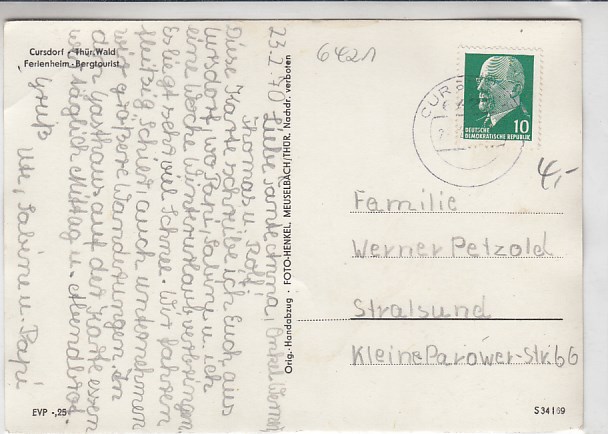 Cursdorf - Thür. Wald
Ferienheim „Bergtourist"
6421
CURSDORF
DEUTSCHE
DEMOKRATISCHE REPUBLIK
10
4,-
23.2.70 Liebe Tante Anna, Onkel Werner,
Thomas u. Rolf!
Diese Karte schreibe ich Euch aus
Cursdorf, wo Papi, Sabine u. ich
eine Woche Winterurlaub verbringen.
Es liegt sehr viel Schnee. Wir fahren
fleißig Schi, auch unternehmen
wir größere Wanderungen. In
dem Gasthaus auf der Karte essen
wir täglich Mittag u. Abendbrot.
Gruß Ute, Sabine u. Papi
Orig.-Handabzug · FOTO-HENKEL, MEUSELBACH/THÜR. Nachdr. verboten
Familie
Werner Petzold
Stralsund
Kleine Parower-Str. 66
EVP -,25
S 34 | 69